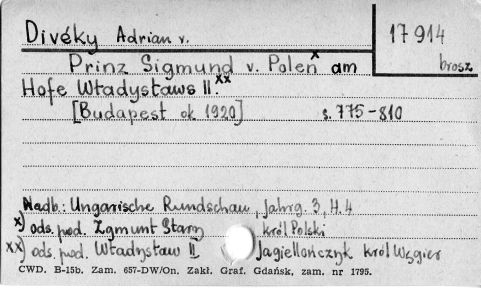 Divéky Adrian v.
17914
brosz
Prinz Sigmund v. Polen x am
Hofe Władysławs II. xx
[Budapest ok 1920] s. 775-810
Nadb: Ungarische Rundschau, Jahrg. 3, H. 4
x) ods. pod. Zygmunt Stary król Polski
xx) ods. pod. Władysław II Jagiellończyk król Węgier
CWD. B-15b. Zam. 657-DW/On. Zakł. Graf. Gdańsk, zam. nr 1795.